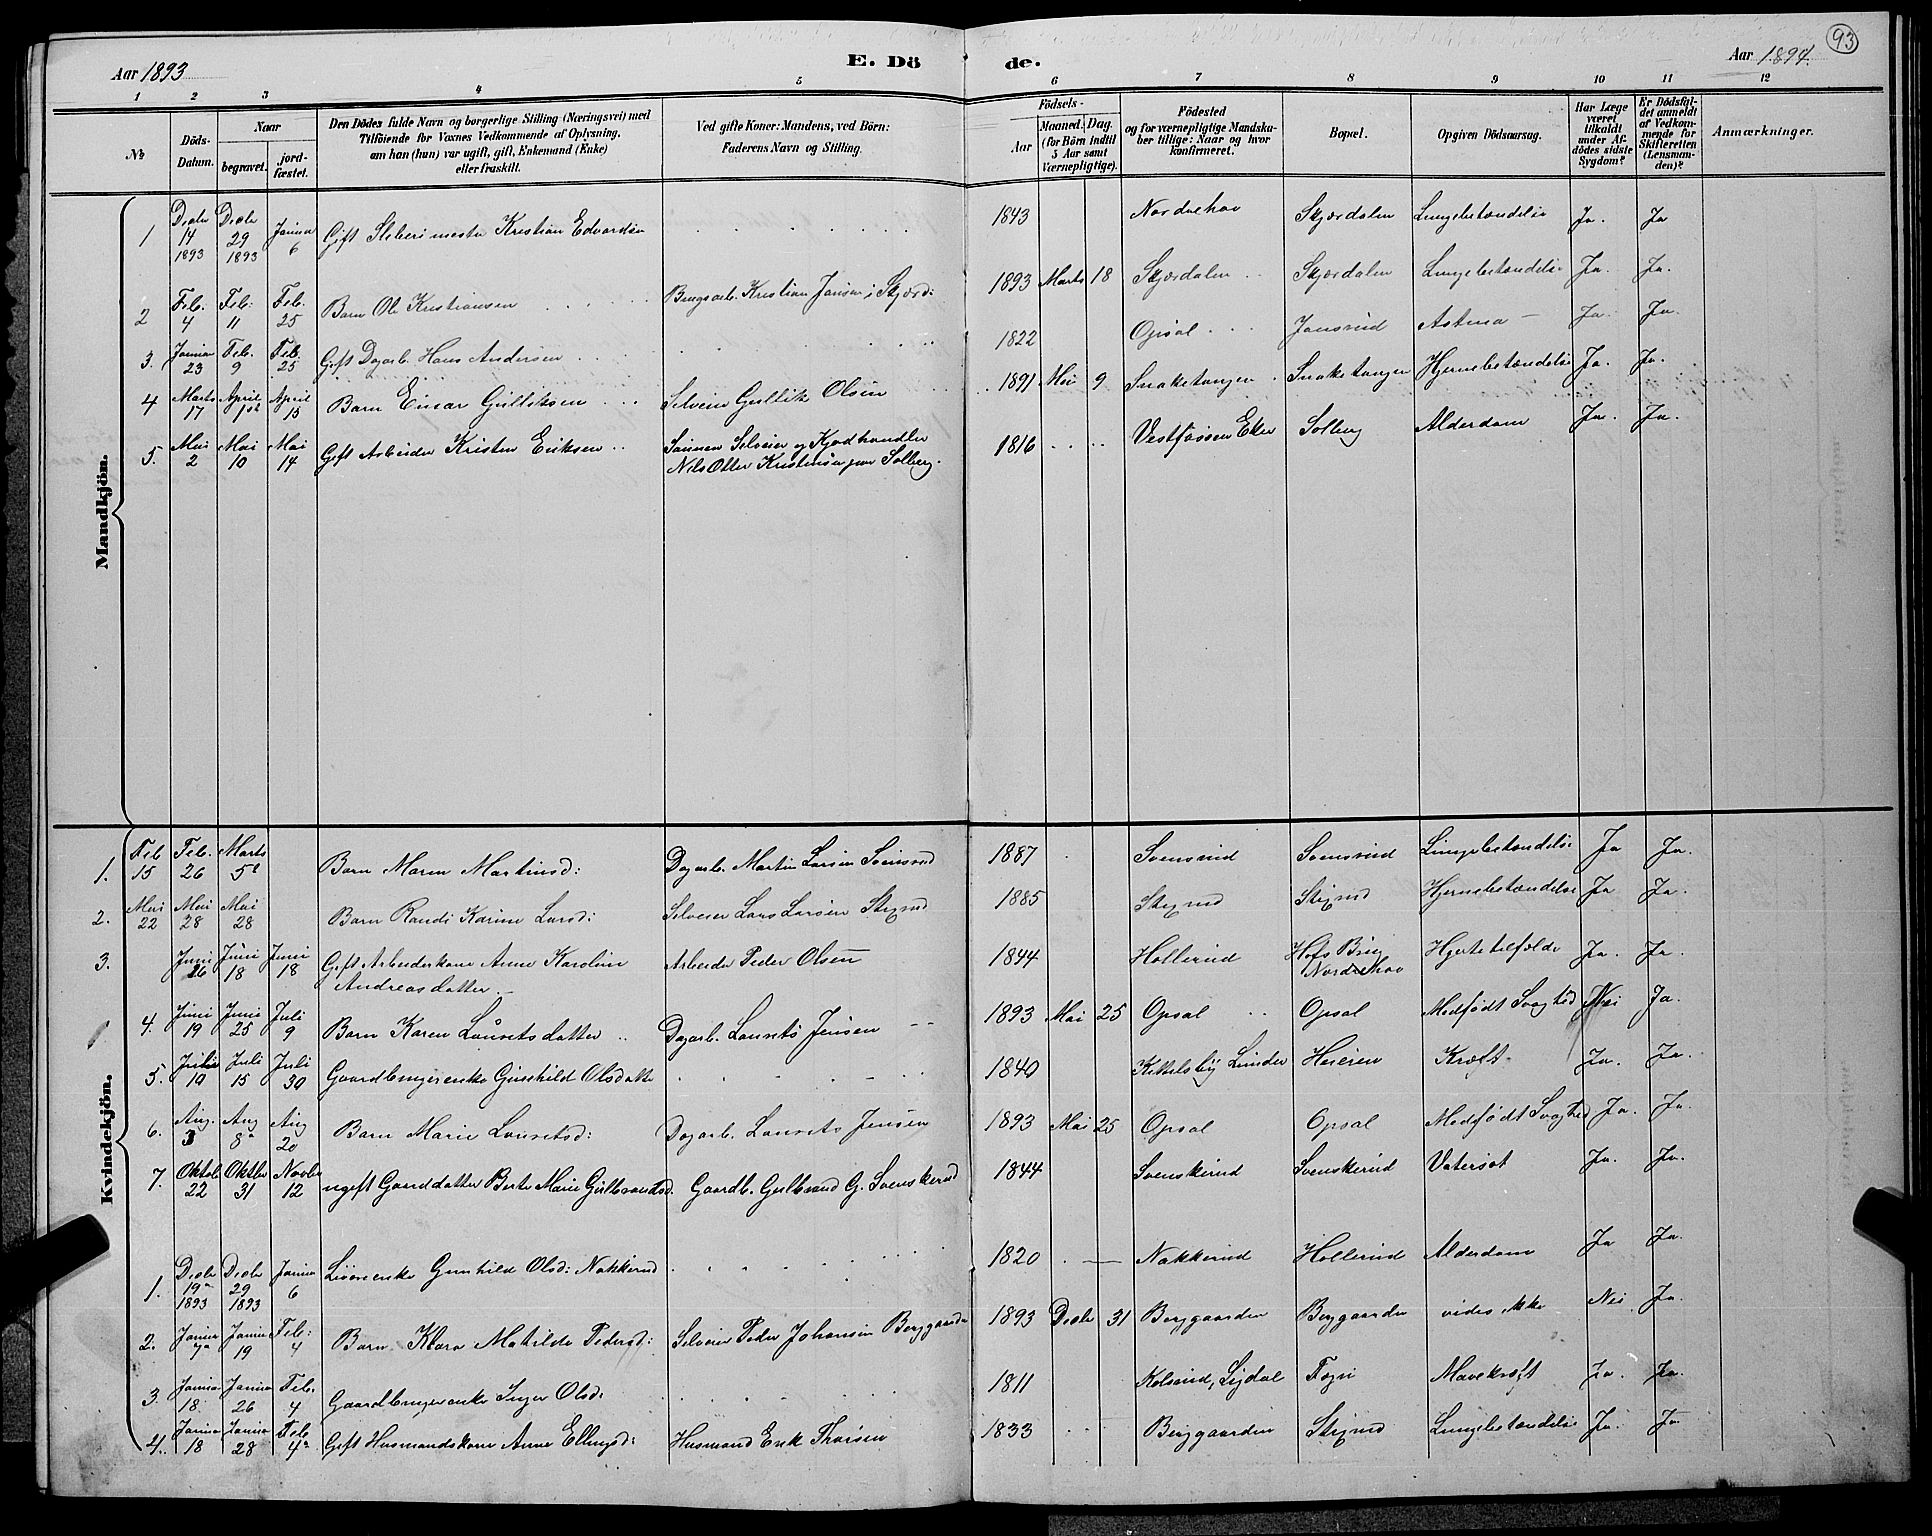 Aar 1893
E. Dö
de.
Aar 1894.
93
1 2 3 4 5
6 7 8 9 10 11 12
No
Döds-Datum.
Naar
begravet.
jord-fæstet.
Den Dödes fulde Navn og borgerlige Stilling (Næringsvei) med
Tilföiende for Voxnes Vedkommende af Oplysning,
om han (hun) var ugift, gift, Enkemand (Enke)
eller fraskilt.
Ved gifte Koner: Mandens, ved Börn:
Faderens Navn og Stilling.
Födsels-
Aar
Maaned. Dag.
(for Börn indtil
5 Aar samt
Værnepligtige).
Födested
og for værnepligtige Mandska-
ber tillige: Naar og hvor
konfirmeret.
Bopæl.
Opgiven Dödsaarsag.
Har Læge
været
tilkaldt
under Af-
dödes sidste
Sygdom?
Er Dödsfal-
det anmeldt
af Vedkom-
mende for
Skifteretten
(Lensman-
den)?
Anmærkninger.
Mandkjön.
1 Decbr 14 1893 Decbr 29 1893 Januar 6 Gift Kristian Edvardsen 1843 Norderhov Skjærdalen Lungebetændelse Ja. Ja
2 Feb. 4 Feb: 11 Feb. 25 Barn Ole Kristiansen Brugsarb. Kristian Jansen i Skjærd: 1893 Marts 18 Skjærdalen Skjærdalen Lungebetændelse Ja. Ja.
3. Januar 23 Feb. 9 Feb. 25 Gift Dagarb. Hans Andersen 1822 Opsal Jonsrud Astma Ja. Ja.
4 Marts 17 April 1st April 15 Barn Einar Gulliksen Selveier Gullik Olsen 1891 Mai 9 Snaketangen Snaketangen Hjernebetændelse Ja. Ja.
5. Mai 2 Mai 10 Mai 14 Gift Arbeider Kristen Eriksen Sønnen Selveier og Kjødhandler
Nils Otter Kristensen Solberg. 1816 Vestfossen Eker Solberg Alderdom Ja. Ja.
Kvindekjön.
1. Feb 15 Feb. 26 Marts 5 Barn Maren Martinsd: Dagarb. Martin Larsen Svensrud 1887 Svensrud Svensrud Lungebetændelse Ja Ja.
2. Mai 22 Mai 28 Mai 28 Barn Randi Karine Larsd: Selveier Lars Larsen Stixrud 1885 Stixrud Stixrud Hjernebetændelse Ja Ja.
3. Juni 26 Juni 18 Juni 18 Gift Arbeiderkone Anne Karoline
Andreasdatter Arbeider Peder Olsen 1844 Hollerud Hofs Brug
Norderhov Hjertetilfælde Ja. Ja.
4. Juni 19 Juni 25 Juli 9 Barn Karen Lauretsdatter Dagarb. Laurets Jensen 1893 Mai 25 Opsal Opsal Medfødt Svaghed Nei Ja.
5. Juli 10 Juli 15 Juli 30 Gaardbrugerenke Gunhild Olsdatter 1840 Kittelsby Lunder Heieren Kræft Ja. Ja.
6. Aug. 3 Aug 8 Aug 20 Barn Marie Lauretsd: Dagarb. Laurets Jensen 1893 Mai 25 Opsal Opsal Medfødt Svaghed Ja. Ja.
7. Oktob 22 Oktbr 31 Novbr 12 ugift Gaarddatter Berte Marie Gulbrandsd. Gaardb. Gulbrand G. Svenskerud 1844 Svenskerud Svenskerud Vatersot Ja. Ja.
1. Decbr 19 1893 Decbr 29 1893 Januar 6 Gunhild Olsd: Nakkerud 1820 Nakkerud Hollerud Alderdom Ja Ja.
2. Januar 7 Januar 19 Feb: 4 Barn Klara Matilde Pedersd: Selveier Peder Johansen Berggaarden 1893 Decbr 31 Berggaarden Berggaarden vides ikke Nei Ja.
3. Januar 18. Januar 26 Feb. 4 Gaardbrugerenke Inger Olsd: 1811 Kolsrud, Sigdal Fogn Mavekræft Ja. Ja.
4. Januar 18 Januar 28 Feb. 4 Gift Husmandskone Anne Ellingsd: Husmand Erik Thorsen 1833 Berggaarden Stixrud Lungebetændelse Ja. Ja